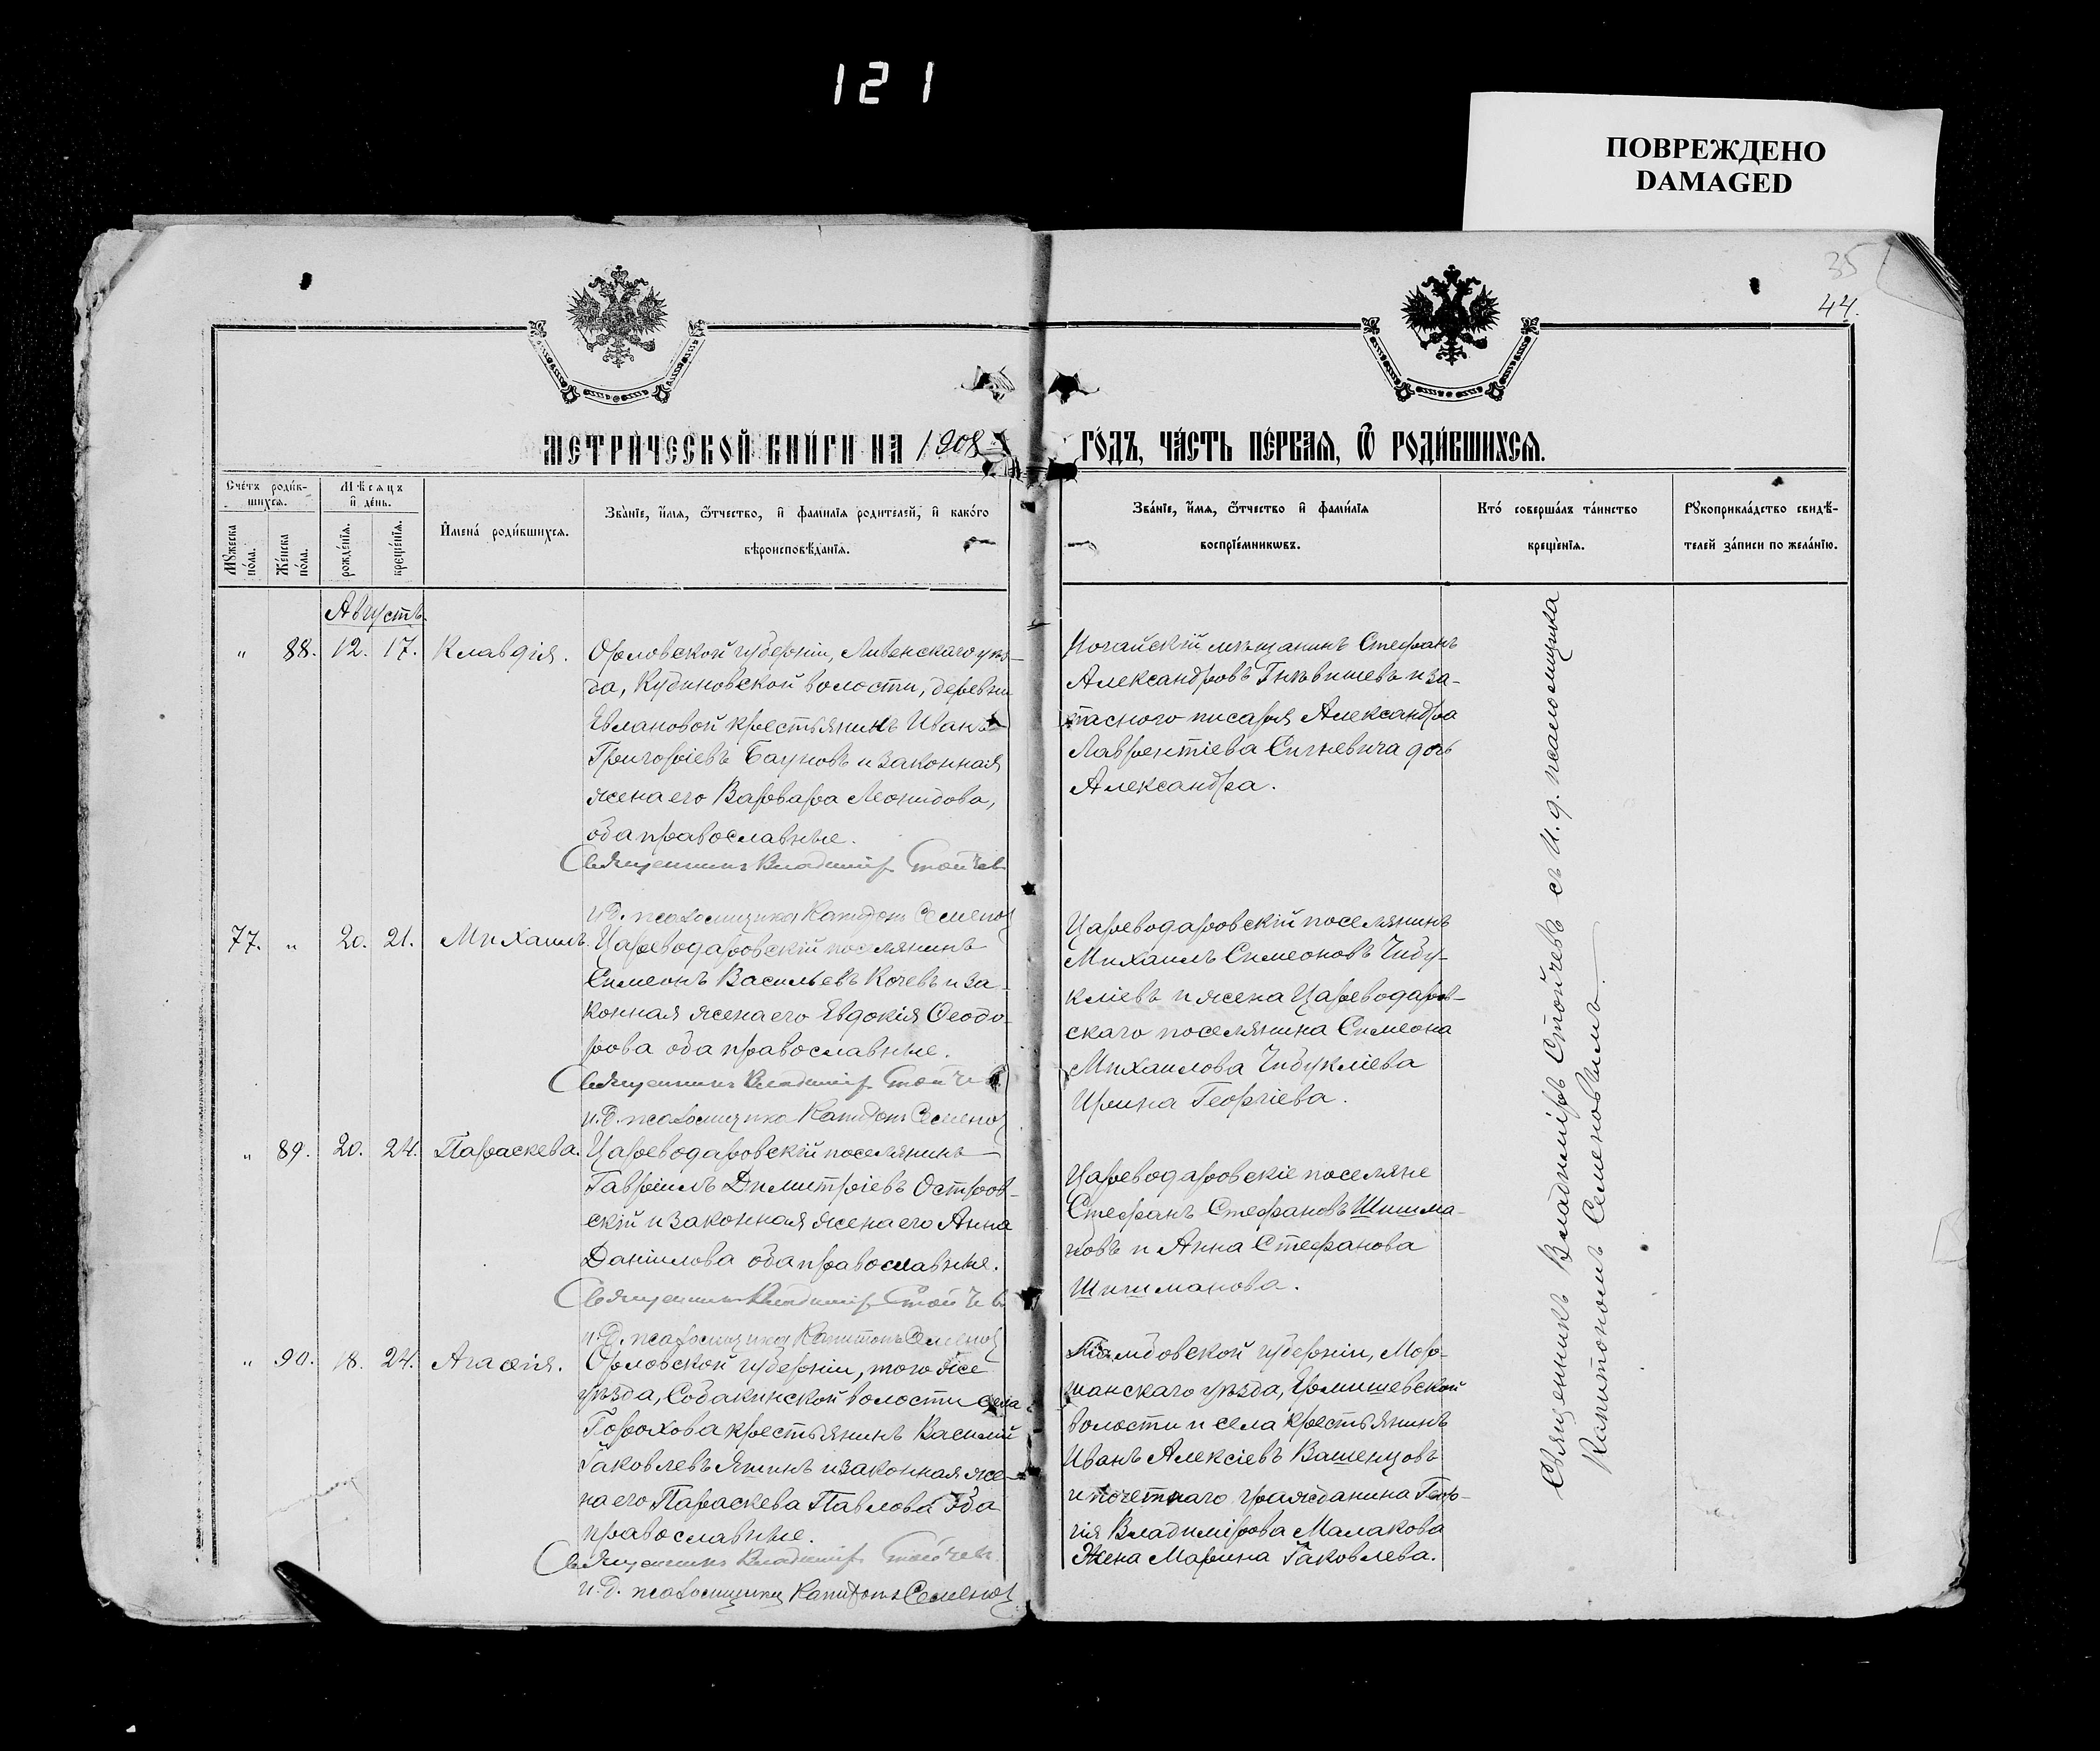 121
ПОВРЕЖДЕНО
DAMAGED
35
44.
МЕТРИЧЕСКОЙ КНИГИ НА 1908
ГОДЪ, ЧАСТЬ ПЕРВАЯ, Ѿ РОДИВШИХСЯ.
Счетъ родив-
шихся.
Мѣсяцъ
и день.
Мужеска
пола.
Женска
пола.
рожденія.
крещенія.
Имена родившихся.
Званіе, имя, ѿтчество, и фамилія родителей, и какого
вѣроисповѣданія.
Званіе, имя, ѿтчество и фамилія
воспріемниковъ.
Кто совершалъ таинство
крещенія.
Рукоприкладство свидѣ-
телей записи по желанію.
Августъ.
" 88. 12. 17. Клавдія.
Орловской губерніи, Ливенскаго уѣз-
да, Кудиновской волости, деревни
Евлановой крестьянинъ Иванъ
Григоріевъ Бауковъ и законная
жена его Варвара Леонидова,
оба православные.
Священникъ Владимір Стойчев
и.д. псаломщика Капитонъ Семенов
Ногайскій мѣщанинъ Стефанъ
Александровъ и за-
паснаго писаря Александра
Лаврентіева дочь
Александра.
77. " 20. 21. Михаилъ.
Цареводаровскій поселянинъ
Симеонъ Васильевъ Кочевъ и за-
конная жена его Евдокія Ѳеодо-
рова оба православные.
Священникъ Владимір Стойчев
и.д. псаломщика Капитонъ Семенов
Цареводаровскій поселянинъ
Михаилъ Симеоновъ Чибу-
кліевъ и жена Цареводаров-
скаго поселянина Симеона
Михаилова Чибукліева
Ирина Георгіева.
" 89. 20. 24. Параскева.
Цареводаровскій поселянинъ
Гавріилъ Димитріевъ Остров-
скій и законная жена его Анна
Даніилова оба православные.
Священникъ Владимір Стойчев
и.д. псаломщика Капитонъ Семенов
Цареводаровскіе поселяне
Стефанъ Стефановъ Шишма-
новъ и Анна Стефанова
Шишманова.
" 90. 18. 24. Агаѳія.
Орловской губерніи, того же
уѣзда, Собакинской волости села
Горохова крестьянинъ Василій
Іаковлевъ Яшинъ и законная же-
на его Параскева Павлова оба
православные.
Священникъ Владимір Стойчев
и.д. псаломщика Капитонъ Семенов
Тамбовской губерніи, Мор-
шанскаго уѣзда,
волости и села крестьянинъ
Иванъ Алексіевъ Вашенцовъ
и почетнаго гражданина Геор-
гія Владимірова Малакова
жена Марина Іаковлева.
Священникъ Владиміръ Стойчевъ съ И. д. псаломщика
Капитономъ Семеновымъ.